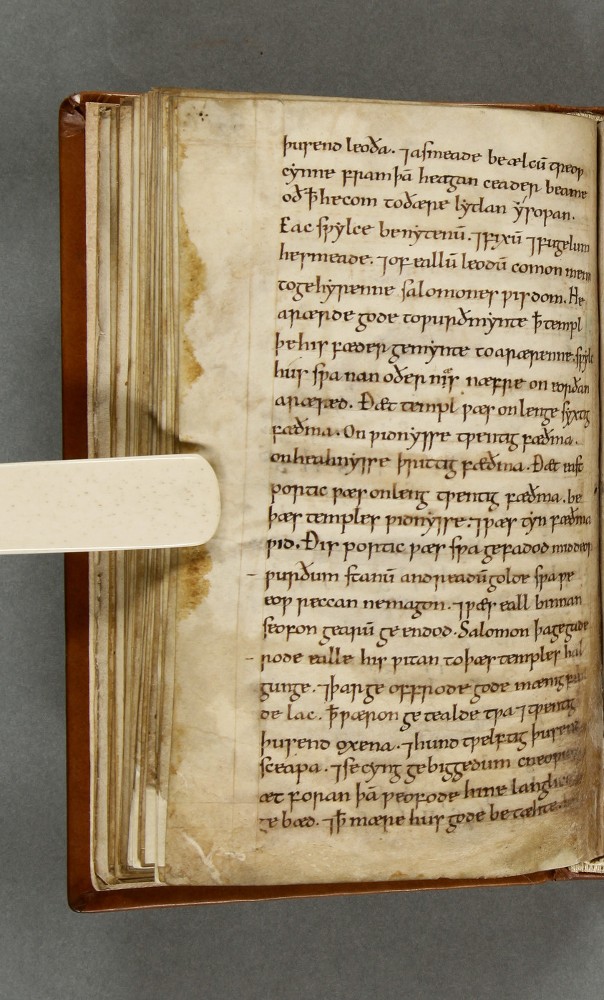 þusend leoða. ⁊ asmeade be ælcū treoƿ
cynne fram þā heagan ceader beame
oð ꝥ he com to ðære lytlan ysopan.
Eac sƿylce be nytenū. ⁊ fixū ⁊ fugelum
he smeade. ⁊ of eallū leodū comon men
to gehyrenne salomones ƿisdom. He
arærde gode to ƿurðmynte ꝥ templ
þe his fæder gemynte to arærenne. sƿylc
hus sƿa nan oðer nis næfre on eorðan
aræred. Ðæt templ ƿæs on lenge syxtig
fæðma. On ƿidnysse tƿentig fæðma.
on heahnysse þrittig fæðma. Ðæt ƿest
portic ƿæs on leng tƿentig fæðma. be
þæs temples ƿidnysse. ⁊ ƿæs tyn fæðma
ƿid. Ðis portic ƿæs sƿa gefadod mid deor
ƿurðum stanū and readū golde sƿa ƿe
eoƿ reccan ne magon. ⁊ ƿæs eall binnan
seofon gearū ge endod. Salomon þa gegade
rode ealle his ƿitan to þæs temples hal
gunge. ⁊ þær ge offrode gode mænig feal
de lac. ꝥ ƿæron ge tealde tƿa ⁊ tƿentig
þusend oxena. ⁊ hund tƿelftig þusend
sceapa. ⁊ se cyng ge biggedum cneoƿum
æt foran þā ƿeofode hine langlice
ge bæd. ⁊ ꝥ mære hus gode be tæhte